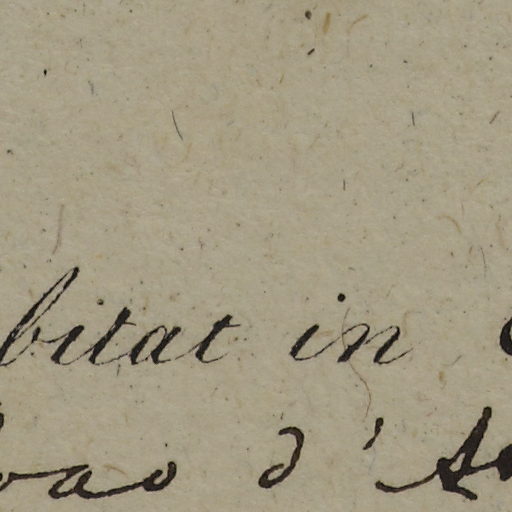 bitat in
oao d'A